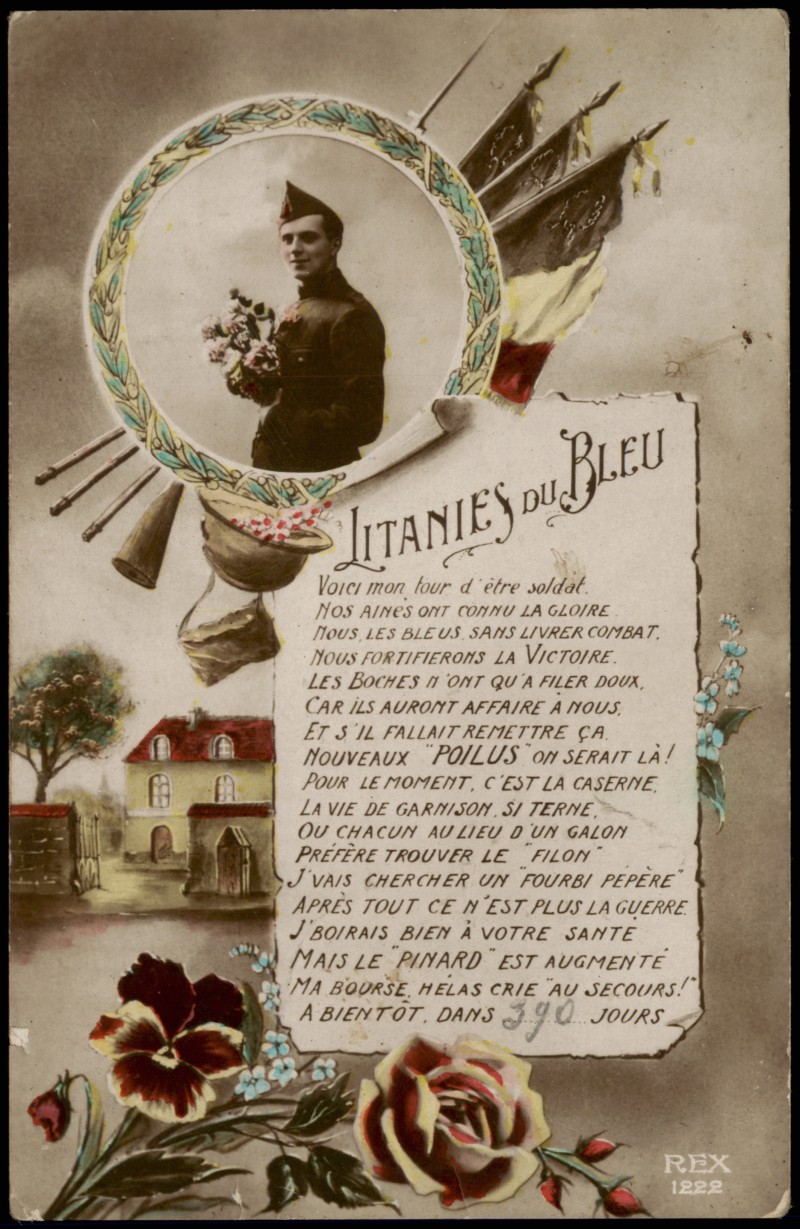 LITANIES DU BLEU
Voici mon tour d'être soldat.
NOS AINÉS ONT CONNU LA GLOIRE.
NOUS, LES BLEUS, SANS LIVRER COMBAT,
NOUS FORTIFIERONS LA VICTOIRE.
LES BOCHES N'ONT QU'A FILER DOUX,
CAR ILS AURONT AFFAIRE À NOUS,
ET S'IL FALLAIT REMETTRE ÇA
NOUVEAUX "POILUS" ON SERAIT LÀ!
POUR LE MOMENT, C'EST LA CASERNE,
LA VIE DE GARNISON, SI TERNE,
OU CHACUN AU LIEU D'UN GALON
PRÉFÈRE TROUVER LE "FILON"
J'VAIS CHERCHER UN "FOURBI PÉPÈRE"
APRÈS TOUT CE N'EST PLUS LA GUERRE.
J'BOIRAIS BIEN À VOTRE SANTÉ
MAIS LE "PINARD" EST AUGMENTÉ
MA BOURSE, HÉLAS CRIE "AU SECOURS!"
A BIENTÔT, DANS 390 JOURS
REX
1222